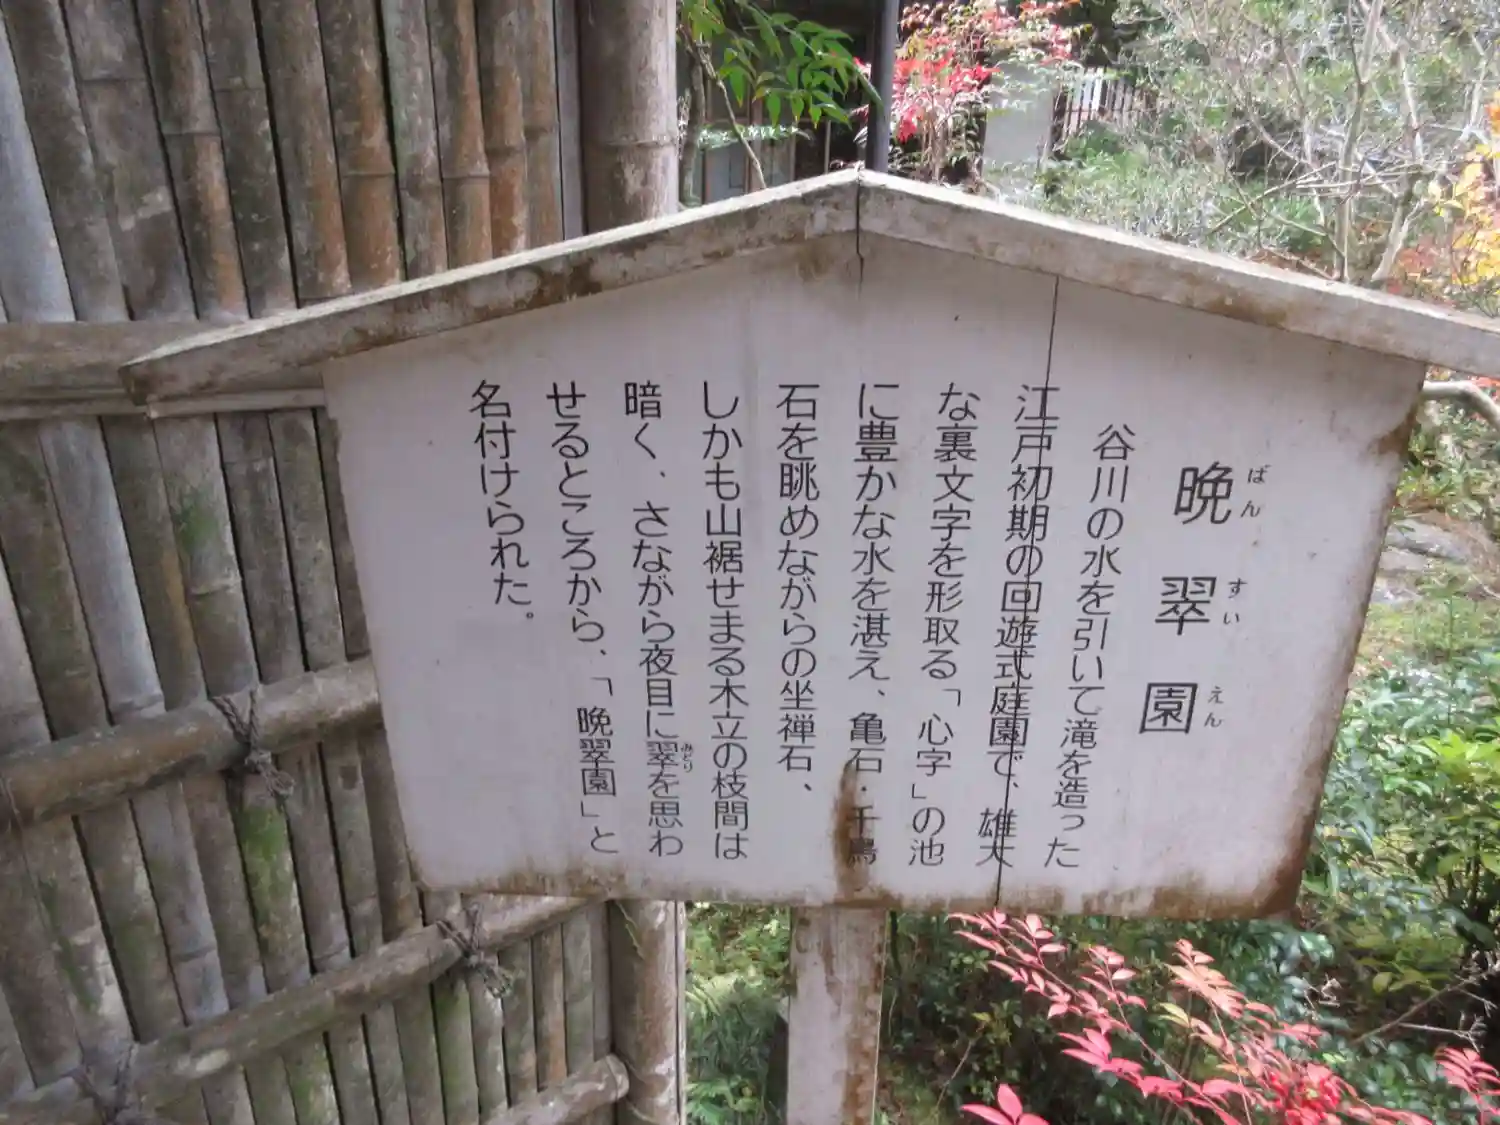 晩翠園
ばんすいえん
谷川の水を引いて滝を造った
江戸初期の回遊式庭園で、雄大
な裏文字を形取る「心字」の池
に豊かな水を湛え、亀石・千鳥
石を眺めながらの坐禅石、
しかも山裾せまる木立の枝間は
暗く、さながら夜目に翠を思わ
みどり
せるところから、「晩翠園」と
名付けられた。